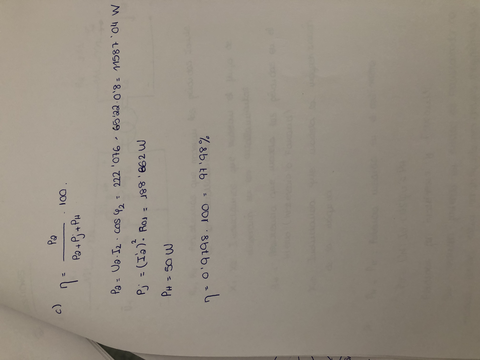 c) η = P2 / (P2 + Pj + PH) · 100.
P2 = U2 · I2 · cos φ2 = 222'076 · 65'22 · 0'8 = 11587'04 W
Pj = (I'2)² · R01 = 188'662 W
PH = 50 W
η = 0'9798 · 100 = 97'98%